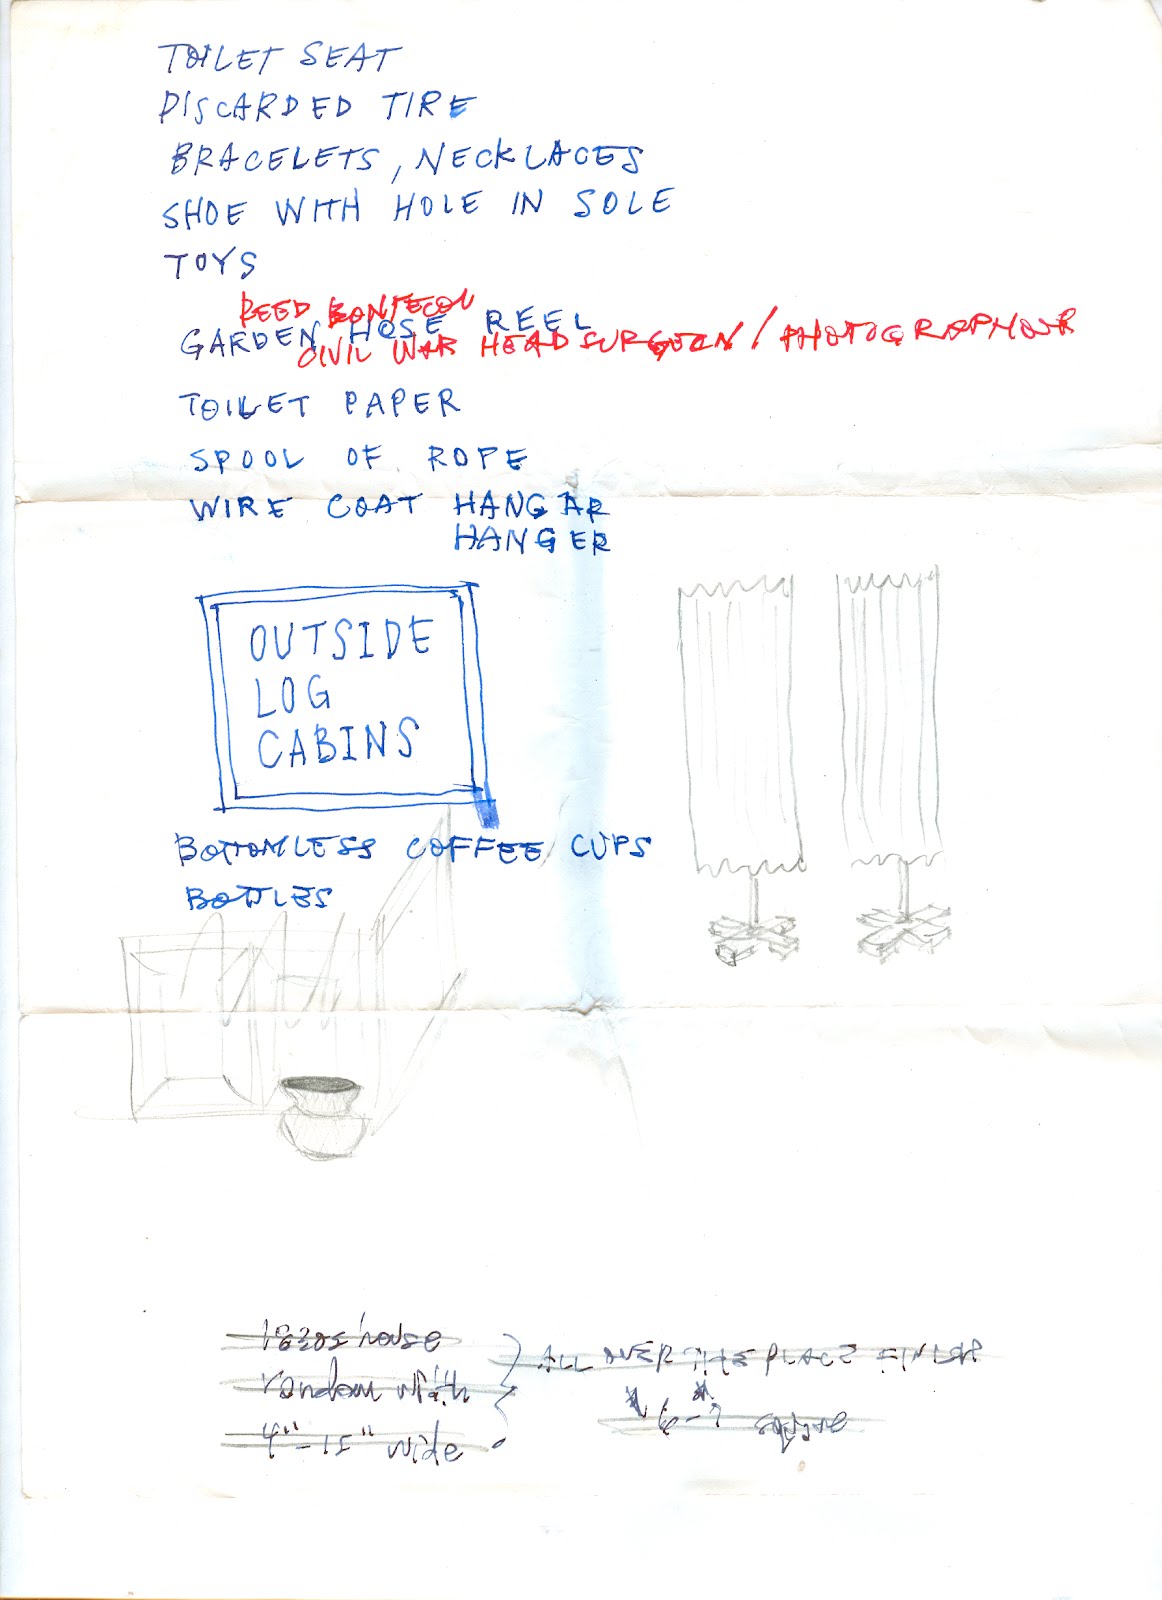 TOILET SEAT
DISCARDED TIRE
BRACELETS, NECKLACES
SHOE WITH HOLE IN SOLE
TOYS
REED BONTECOU
GARDEN HOSE REEL
CIVIL WAR HEAD SURGEON / PHOTOGRAPHOUR
TOILET PAPER
SPOOL OF ROPE
WIRE COAT HANGAR
HANGER
OUTSIDE
LOG
CABINS
BOTTOMLESS COFFEE CUPS
BOTTLES
1830s house
random width
4"-15" wide
ALL OVER THE PLACE
6-7 square